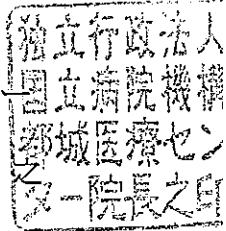 独立行政法人
国立病院機構
都城医療セン
ター院長之印